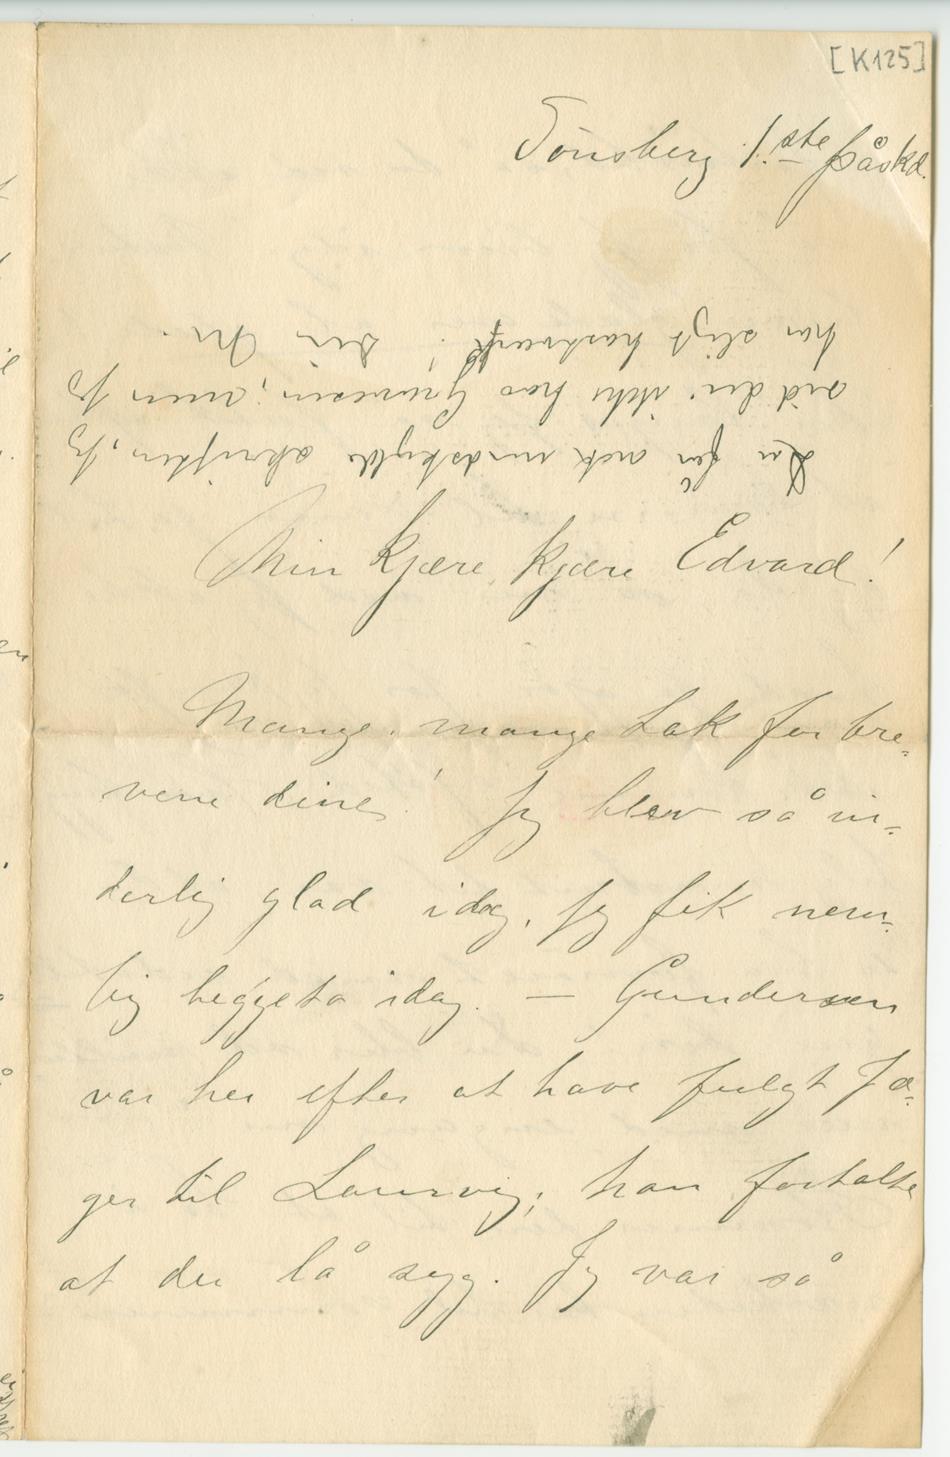 [K125]
Tönsberg 1.ste påskd.
Du får nok undskylde skriften, jeg
sid der ikke hos Gunnesen; men jeg
har sligt hastværk! Din M.
Min kjære, kjære Edvard!
Mange, mange tak for bre-
vene dine! Jeg blev så in-
derlig glad idag, jeg fik nem-
lig beggeto idag. — Gundersen
var her efter at have fulgt Jæ-
ger til Laurvig; han fortalte
at du lå syg. Jeg var så